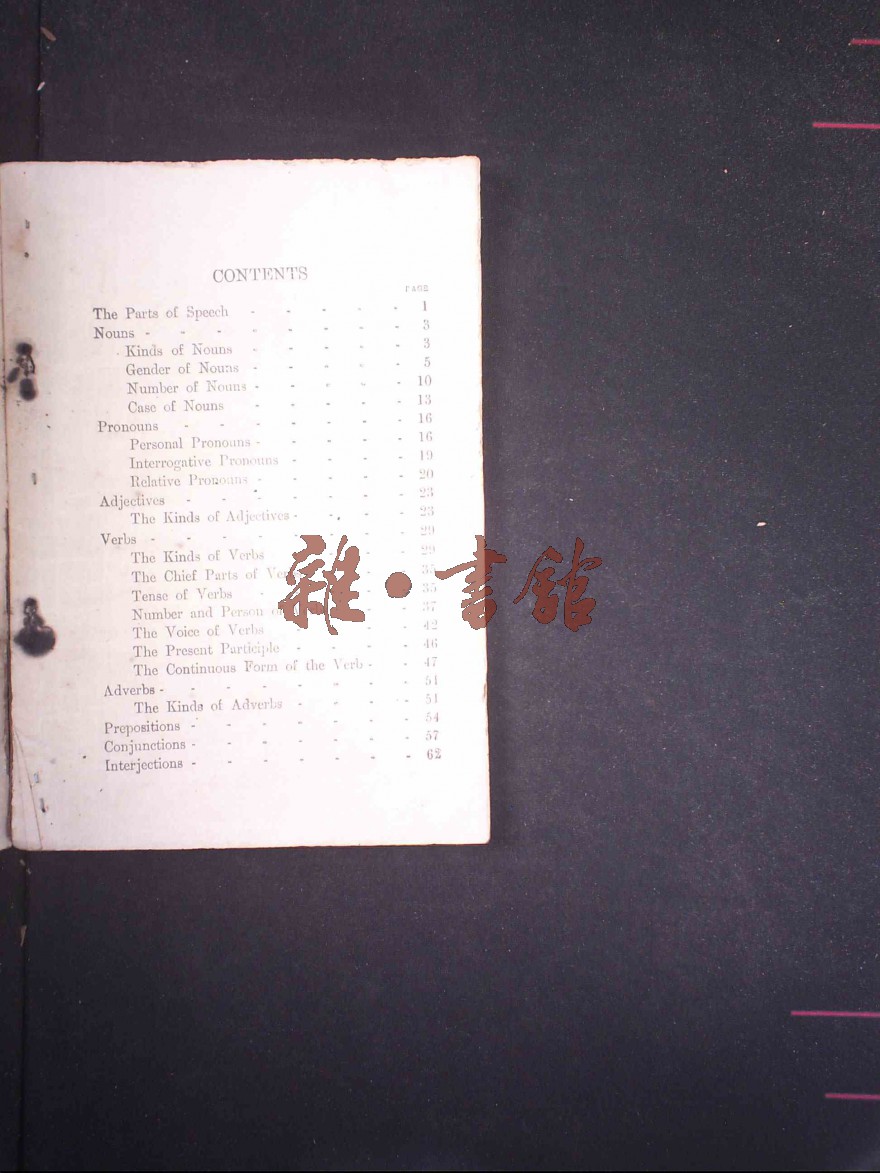 CONTENTS
PAGE
The Parts of Speech - - - - - 1
Nouns - - - - - - - - 3
Kinds of Nouns - - - - - 3
Gender of Nouns - - - - - 5
Number of Nouns - - - - - 10
Case of Nouns - - - - - 13
Pronouns - - - - - - - 16
Personal Pronouns - - - - - 16
Interrogative Pronouns - - - - 19
Relative Pronouns - - - - - 20
Adjectives - - - - - - - 23
The Kinds of Adjectives - - - - 23
Verbs - - - - - - - - 29
The Kinds of Verbs - - - - 29
The Chief Parts of - - 35
Tense of Verbs - - - - 35
Number and Person - - 37
The Voice of Verbs - - - 42
The Present Participle - - - - 46
The Continuous Form of the Verb - - 47
Adverbs - - - - - - - - 51
The Kinds of Adverbs - - - - 51
Prepositions - - - - - - - 54
Conjunctions - - - - - - - 57
Interjections - - - - - - - 62
雜·書館